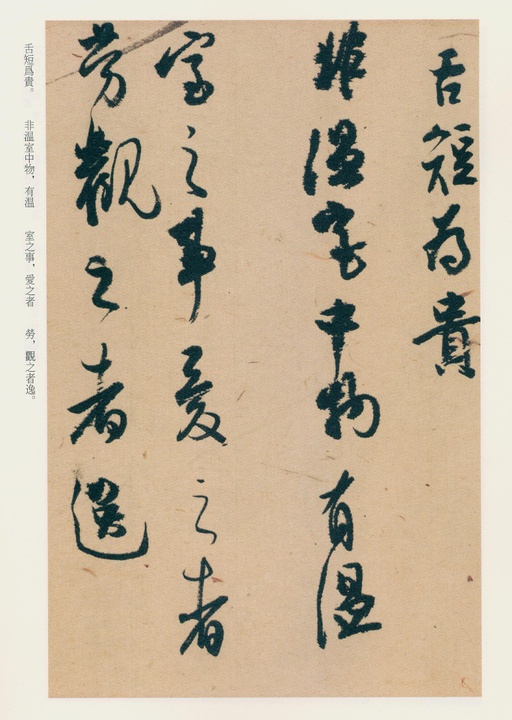 舌短為貴
非溫室中物有溫
室之事愛之者
勞觀之者逸
舌短爲貴。 非溫室中物，有溫 室之事，愛之者 勞，觀之者逸。